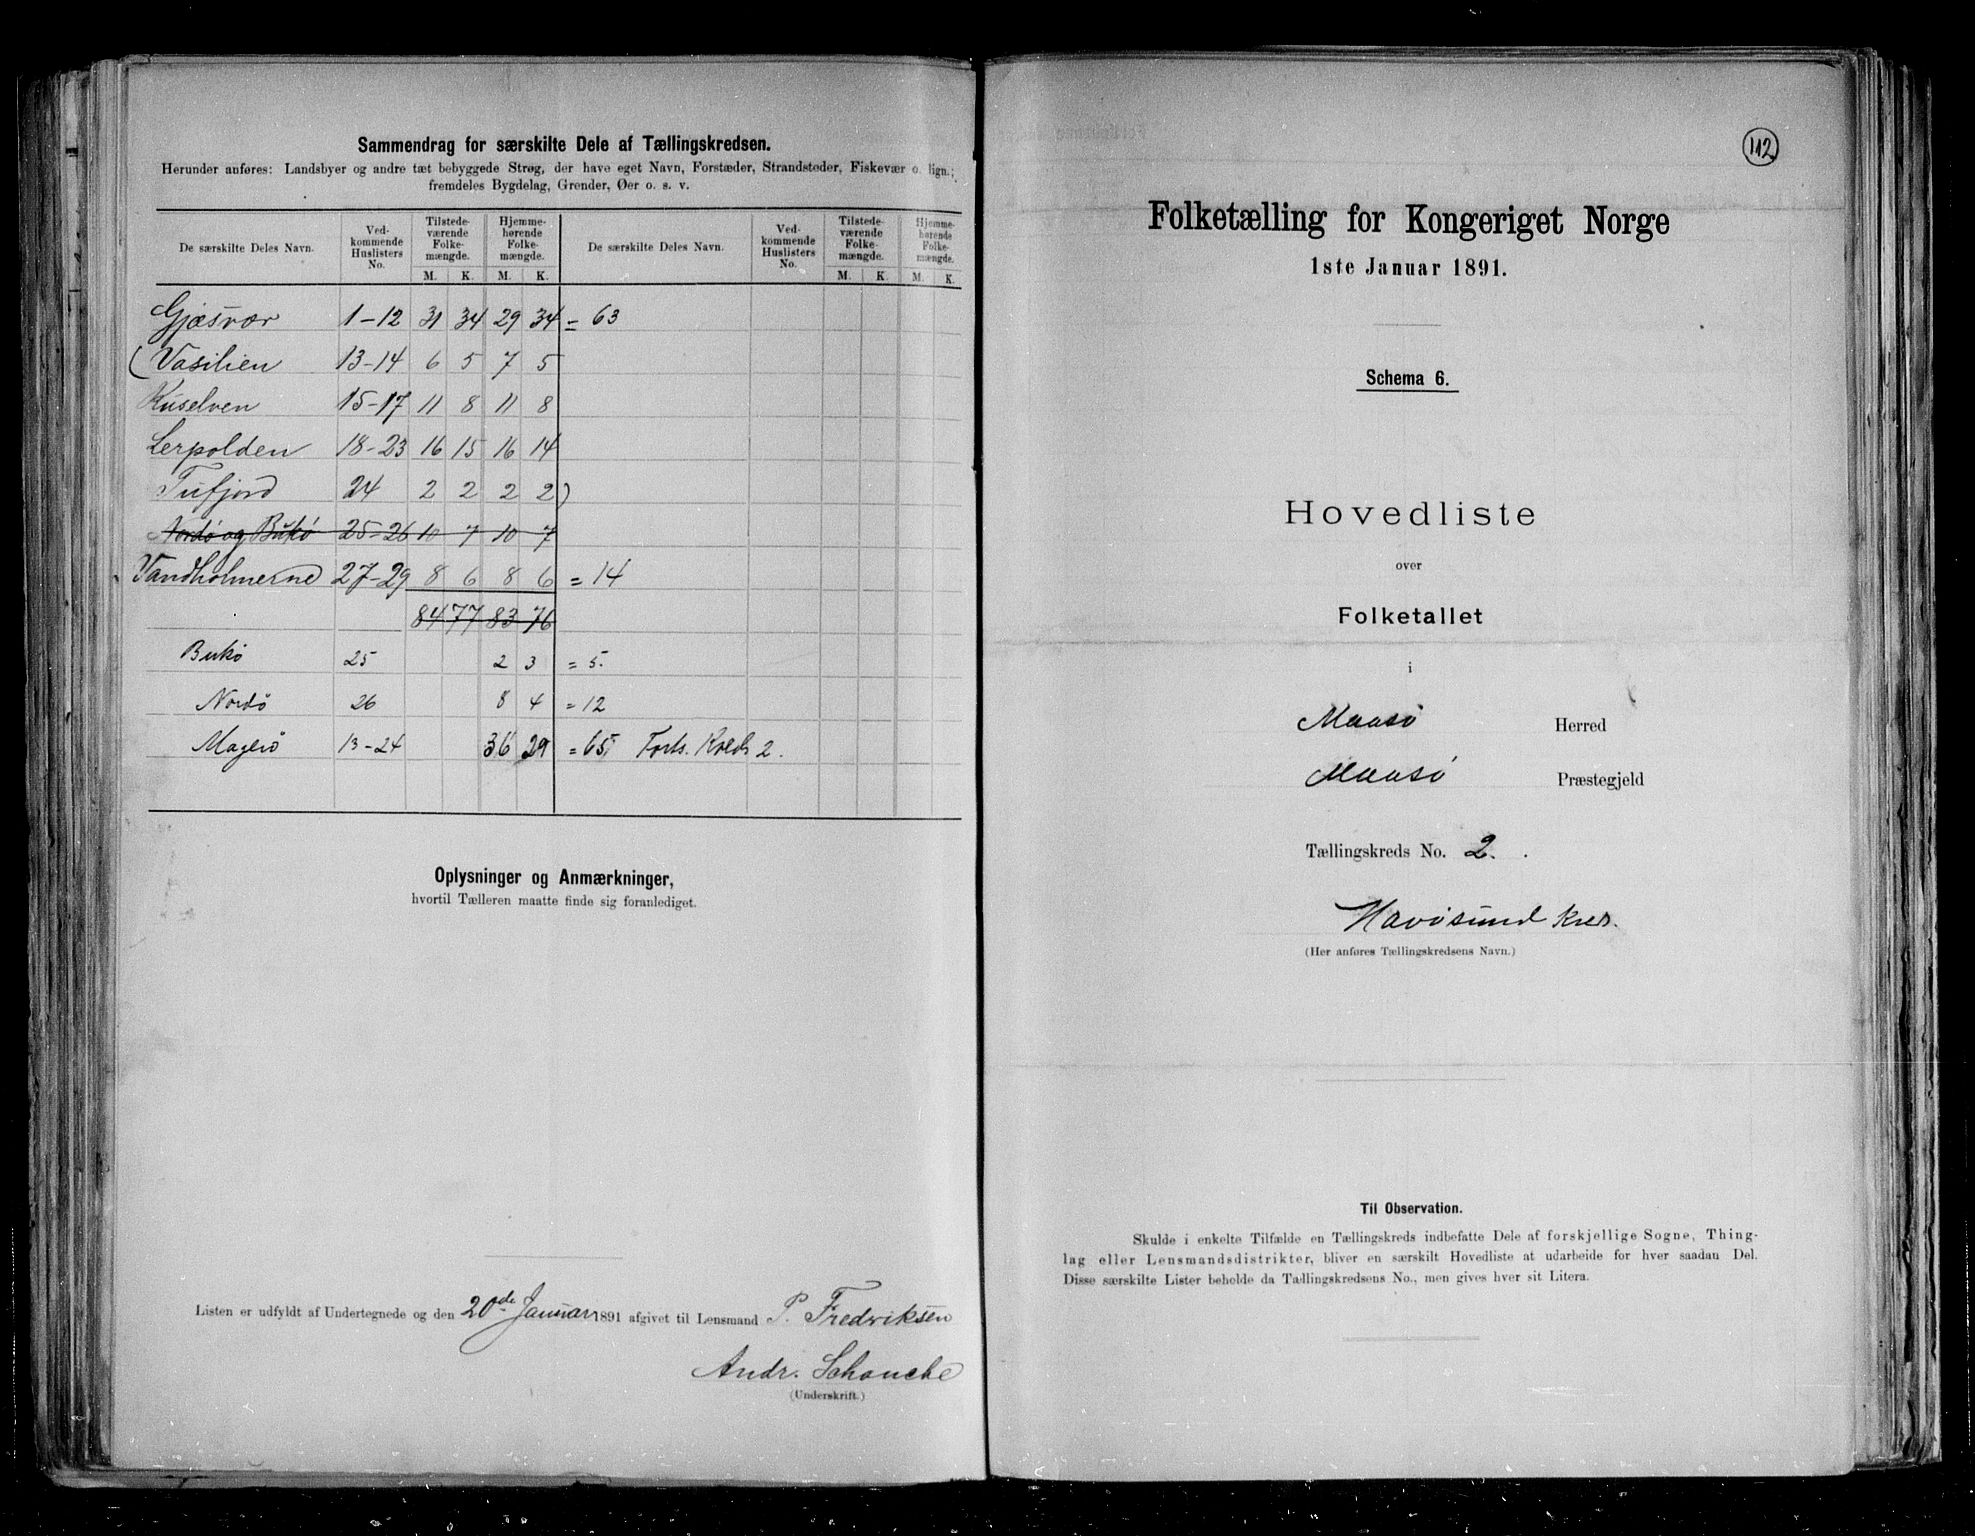 Sammendrag for særskilte Dele af Tællingskredsen.
Herunder anføres: Landsbyer og andre tæt bebyggede Strøg, der have eget Navn, Forstæder, Strandsteder, Fiskevær o. lign.;
fremdeles Bygdelag, Grender, Øer o. s. v.
De særskilte Deles Navn. Ved-kommende Huslisters No. Tilstede-værende Folke-mængde. Hjemme-hørende Folke-mængde. De særskilte Deles Navn. Ved-kommende Huslisters No. Tilstede-værende Folke-mængde. Hjemme-hørende Folke-mængde.
M. K. M. K. M. K. M. K.
Gjæsvær 1-12 31 34 29 34 = 63
(Vasilien 13-14 6 5 7 5
Kuselven 15-17 11 8 11 8
Lerpolden 18-23 16 15 16 14
Tufjord 24 2 2 2 2)
Nordø og Bukø 25-26 10 7 10 7
Vandholmerne 27-29 8 6 8 6 = 14
84 77 83 76
Bukø 25 2 3 = 5.
Nordø 26 8 4 = 12
Magerø 13-24 36 29 = 65, Forts. Kreds 2.
Oplysninger og Anmærkninger,
hvortil Tælleren maatte finde sig foranlediget.
Listen er udfyldt af Undertegnede og den 20de Januar 1891 afgivet til Lensmand P. Fredriksen
Andr. Schanche
(Underskrift.)
112
Folketælling for Kongeriget Norge
1ste Januar 1891.
Schema 6.
Hovedliste
over
Folketallet
i
Maasø Herred
Maasø Præstegjeld
Tællingskreds No. 2.
Havøsund Kreds.
(Her anføres Tællingskredsens Navn.)
Til Observation.
Skulde i enkelte Tilfælde en Tællingskreds indbefatte Dele af forskjellige Sogne, Thing-
lag eller Lensmandsdistrikter, bliver en særskilt Hovedliste at udarbeide for hver saadan Del.
Disse særskilte Lister beholde da Tællingskredsens No., men gives hver sit Litera.